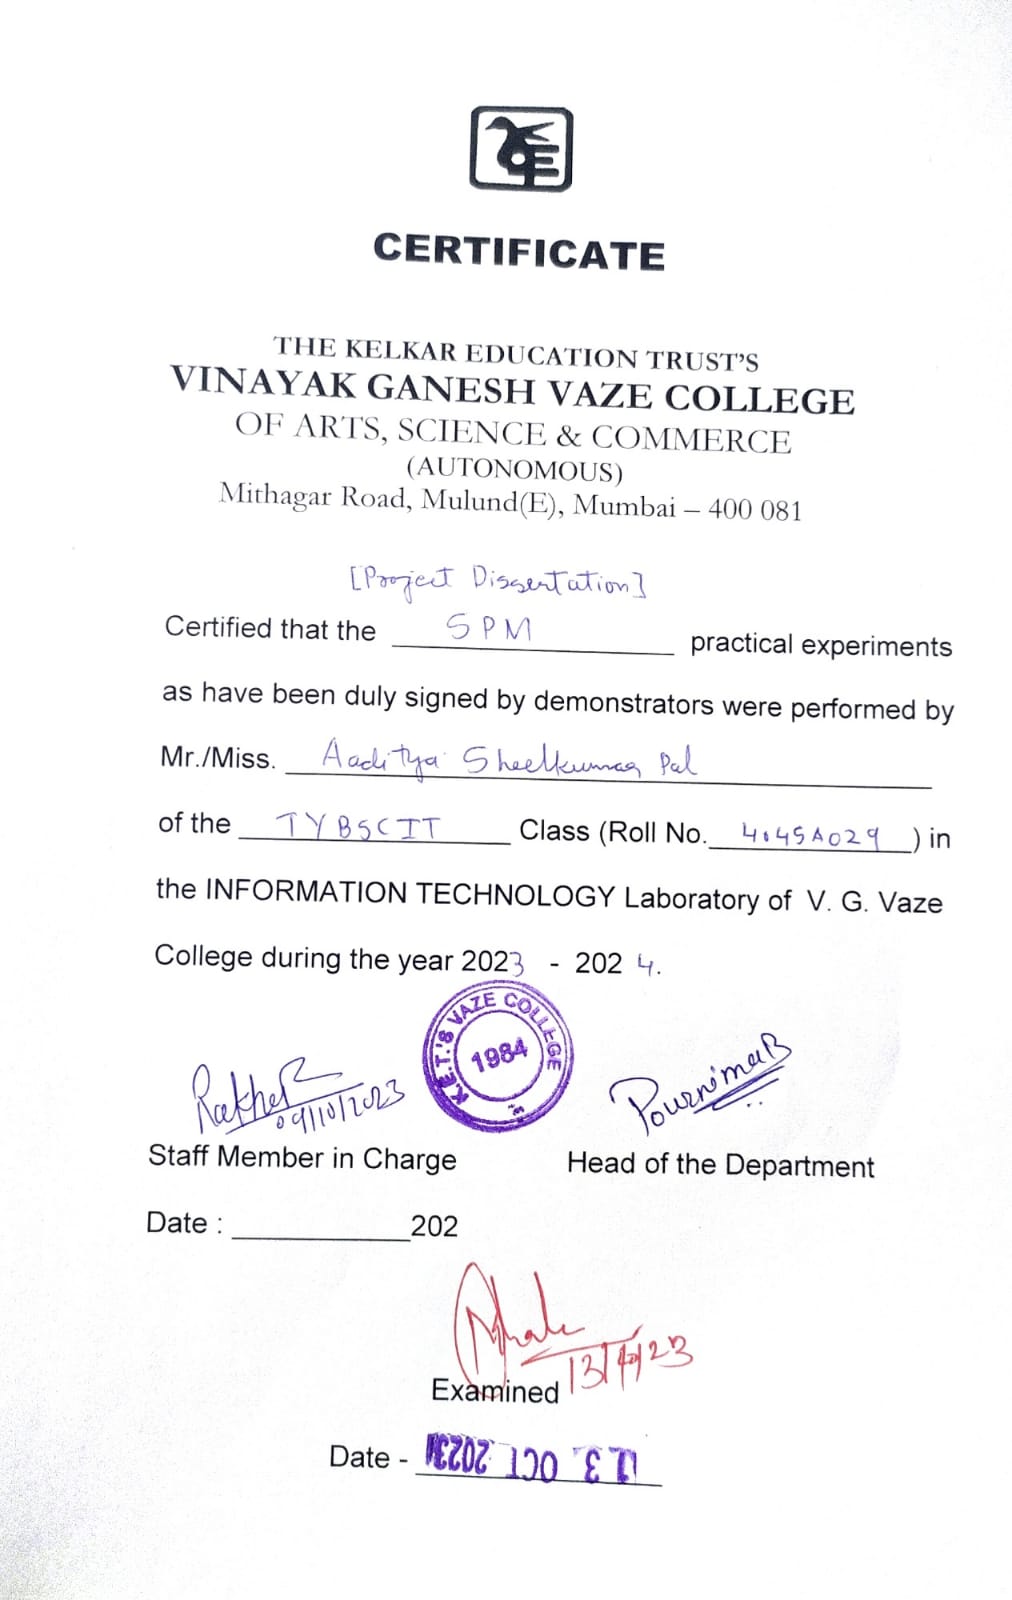 CERTIFICATE
THE KELKAR EDUCATION TRUST'S
VINAYAK GANESH VAZE COLLEGE
OF ARTS, SCIENCE & COMMERCE
(AUTONOMOUS)
Mithagar Road, Mulund(E), Mumbai – 400 081
[Project Dissertation]
Certified that the SPM practical experiments
as have been duly signed by demonstrators were performed by
Mr./Miss. Aaditya Sheelkumar Pal
of the TYBSCIT Class (Roll No. ) in
the INFORMATION TECHNOLOGY Laboratory of V. G. Vaze
College during the year 2023 - 2024.
K.E.T.'S VAZE COLLEGE
1984
09/10/2023
PournimaB
Staff Member in Charge Head of the Department
Date : 202
Examined
Date - 13 OCT 2023